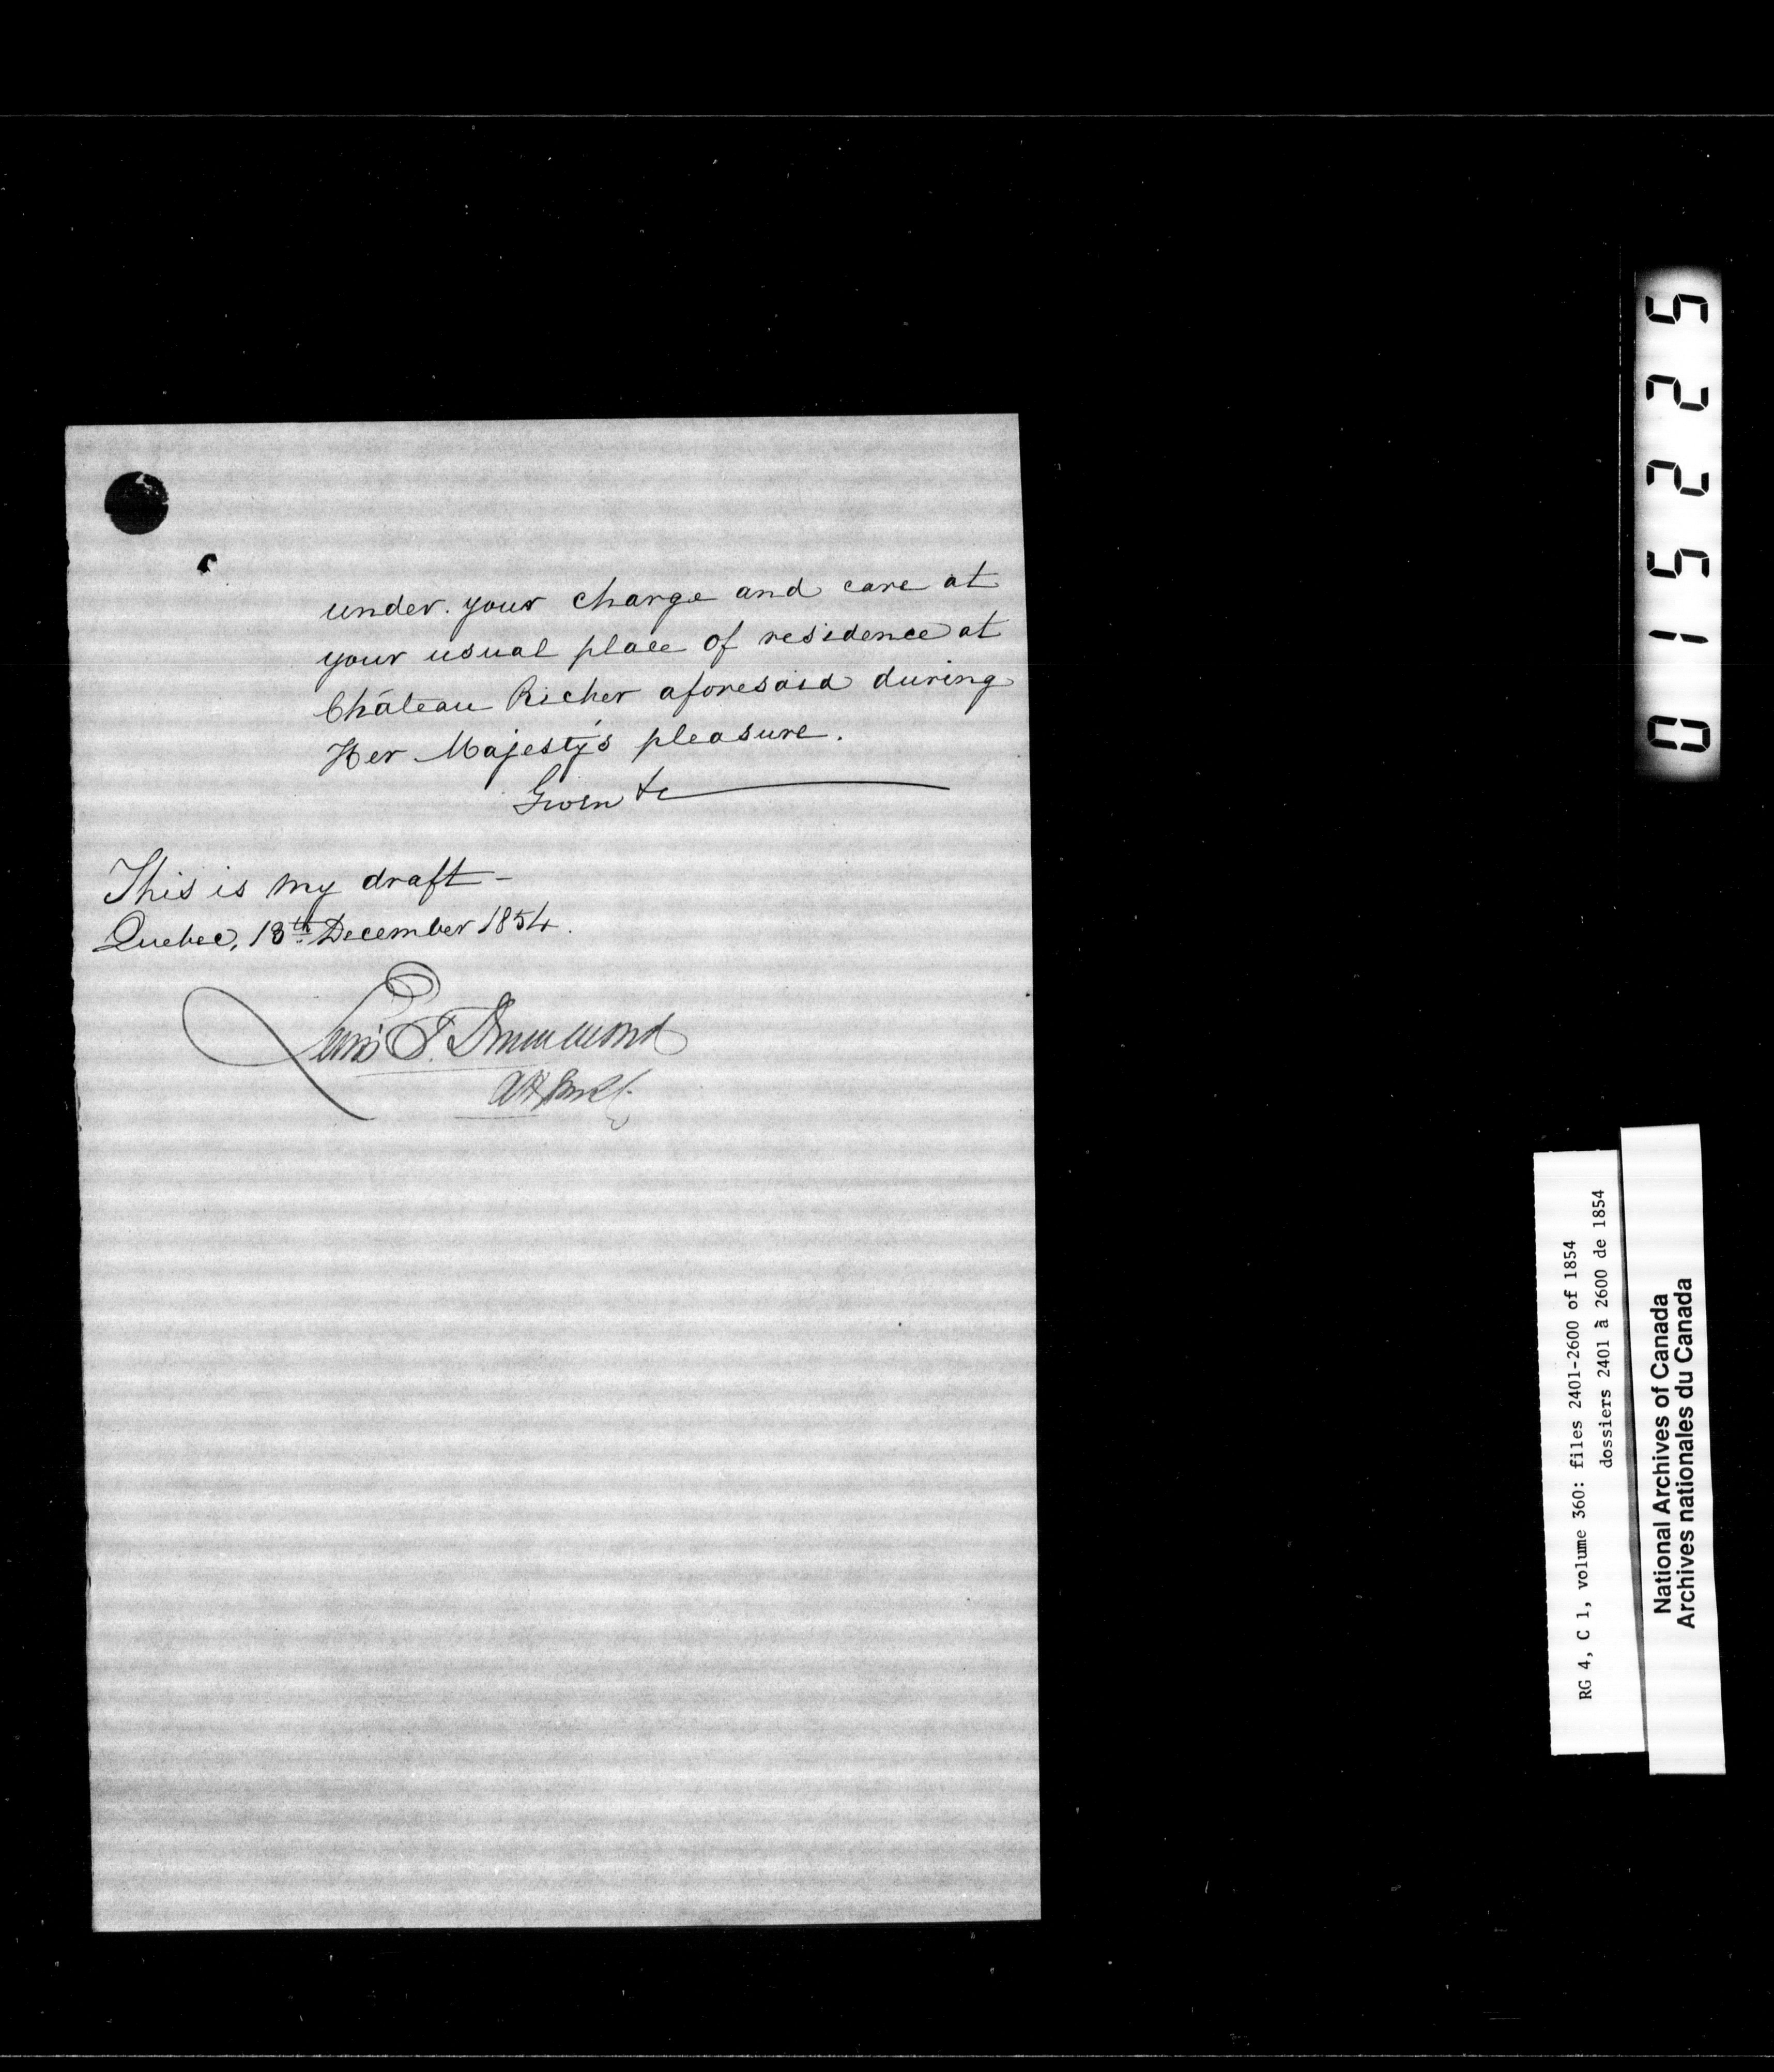 under your charge and care at
your usual place of residence at
Château Richer aforesaid during
Her Majesty's pleasure.
Given &c
This is my draft -
Quebec, 18th December 1854.
Lewis T. Drummond
Atty Genl.
015225
RG 4, C 1, volume 360: files 2401-2600 of 1854
dossiers 2401 à 2600 de 1854
National Archives of Canada
Archives nationales du Canada